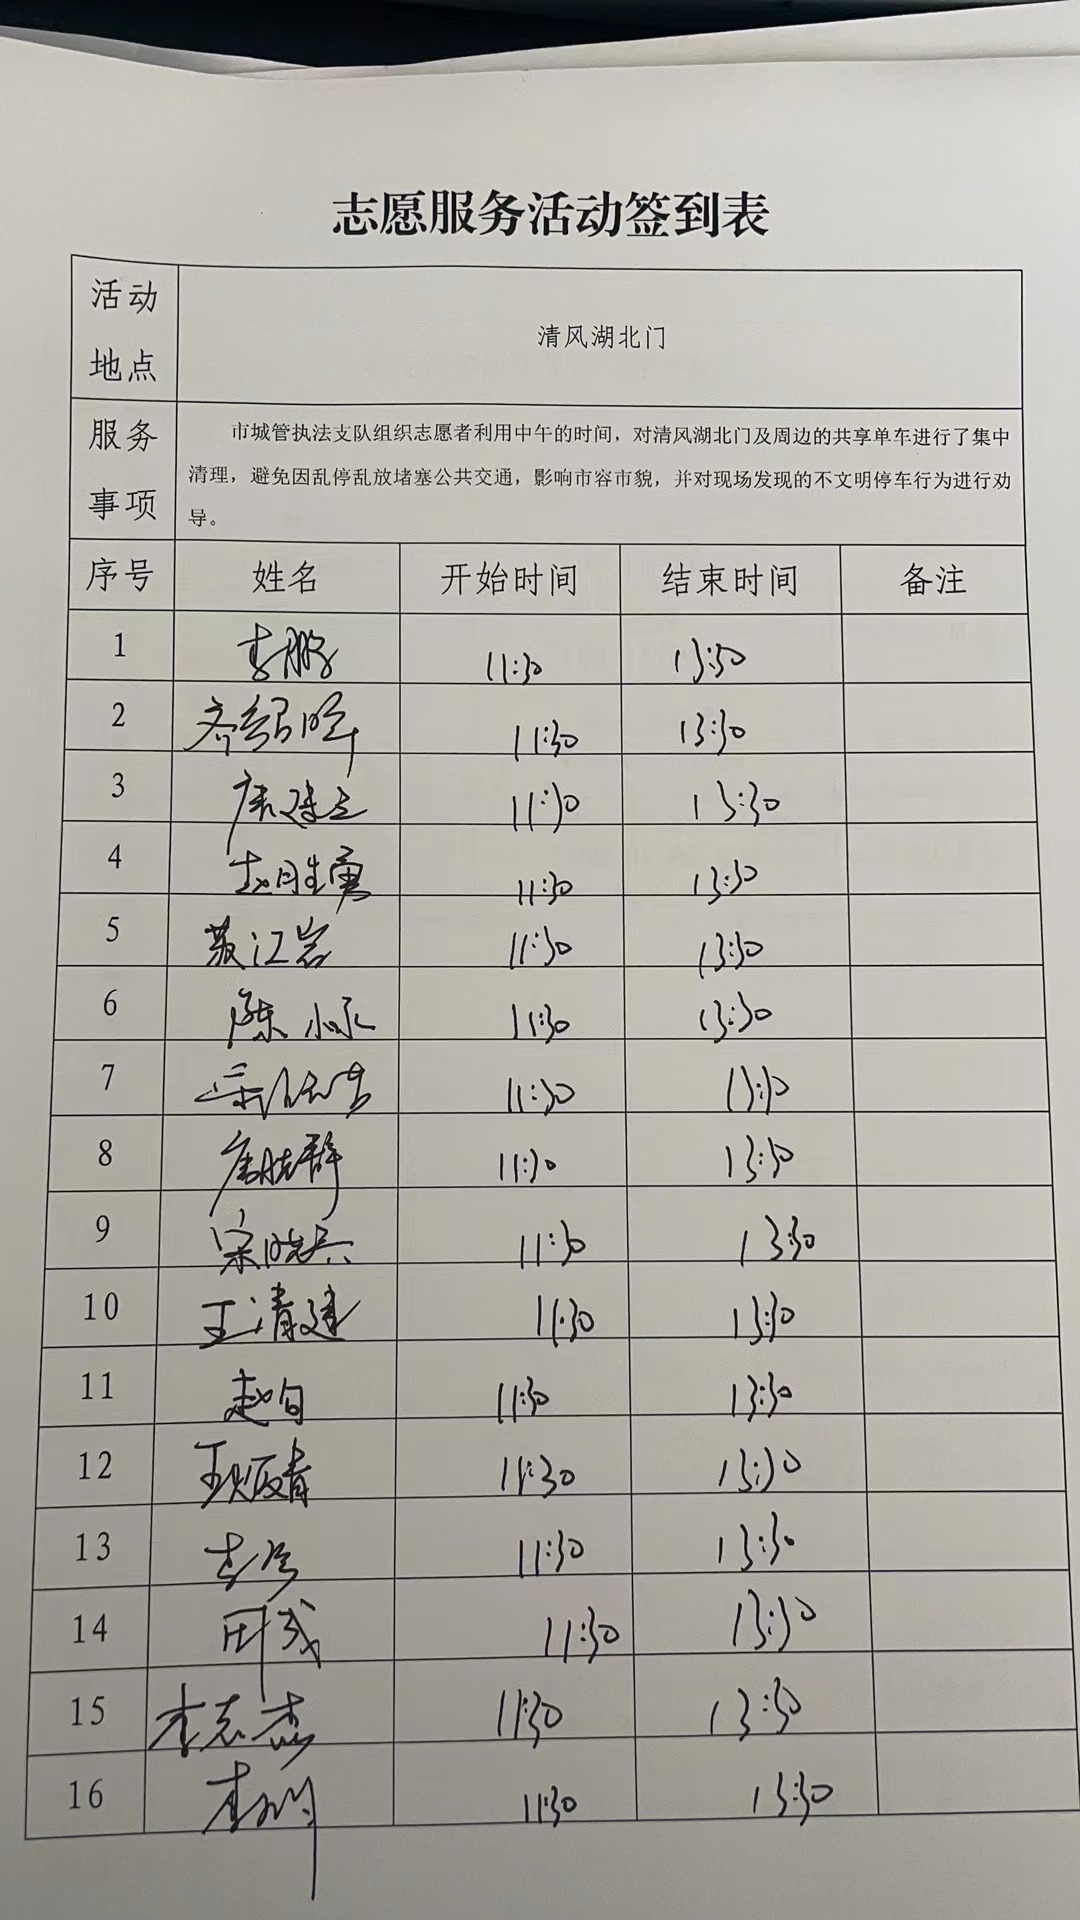 志愿服务活动签到表
活动
地点
清风湖北门
服务
事项
市城管执法支队组织志愿者利用中午的时间，对清风湖北门及周边的共享单车进行了集中
清理，避免因乱停乱放堵塞公共交通，影响市容市貌，并对现场发现的不文明停车行为进行劝
导。
序号 姓名 开始时间 结束时间 备注
1 李鹏 11:30 13:30
2 齐绍晖 11:30 13:30
3 唐建立 11:30 13:30
4 赵胜勇 11:30 13:30
5 江岩 11:30 13:30
6 陈小永 11:30 13:30
7 11:30 13:30
8 唐晓静 11:30 13:30
9 宋晓兵 11:30 13:30
10 王清建 11:30 13:30
11 赵旬 11:30 13:30
12 王 青 11:30 13:30
13 11:30 13:30
14 田 11:30 13:30
15 李志杰 11:30 13:30
16 李 11:30 13:30